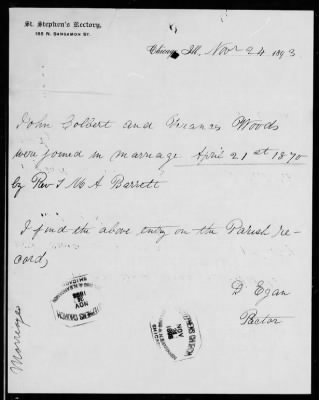 St. Stephen's Rectory,
165 N. Sangamon St.
Chicago, Ill. Nov 24 1893
John Colbert and Frances Woods
were joined in marriage April 21st 1870
by Rev T M A Barrett
I find the above entry on the Parish re-
cord,
D. Egan
Rector
Marriages
NOV
CHICAGO
NOV
CHICAGO